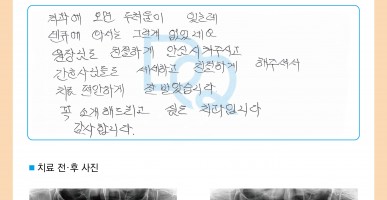 치과에 오면 두려움이 있는데
친절하게 안심시켜주시고
간호사님들도 세세하고 친절하게 해주셔서
치료 편안하게 잘 받았습니다
꼭 소개해드리고 싶은 치과입니다
감사합니다.
■ 치료 전·후 사진